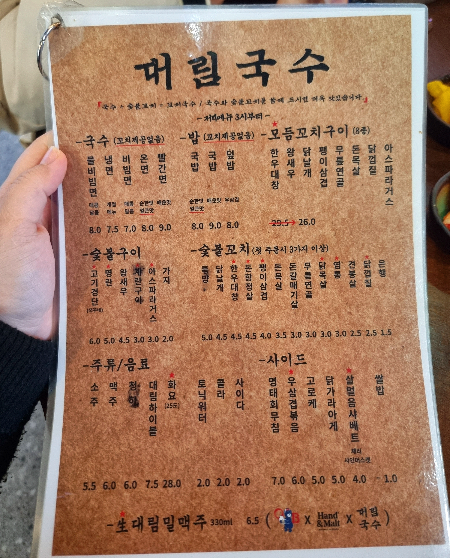 대림국수
-국수 (꼬치제공없음)
물비빔면 냉면 비빔면 온면 빨간면
8.0 7.5 7.0 8.0 9.0
-밥 (꼬치제공없음)
국밥 국밥 덮밥
8.0 9.0 8.0
-모듬꼬치구이 (8종)
한우대창 왕새우 닭날개 팽이삼겹 무릎연골 돈목살 닭껍질 아스파라거스
29.5 → 26.0
-숯불구이
고기경단 명란 왕새우 계란구이 아스파라거스 가지
6.0 5.0 4.5 3.0 3.0 2.0
-숯불꼬치 (첫 주문시 3가지 이상)
닭날개 한우대창 팽이삼겹 돈목살 돈갈매기살 무릎연골 닭목살 염통 닭껍질 은행
5.0 4.5 4.5 4.5 4.0 3.5 3.5 3.5 3.5 3.0 2.5 2.5 1.5
-주류/음료
소주 맥주 청하 대림하이볼 화요 (25도) 토닉워터 콜라 사이다
5.5 6.0 6.0 7.5 28.0 2.0 2.0 2.0
-사이드
명태회무침 우삼겹볶음 고로케 닭가라아게 살얼음샤베트 쌀밥
7.0 6.0 5.0 5.0 4.0 1.0
-生대림밀맥주 330ml 6.5 ( X Hand & Malt X 대림국수 )